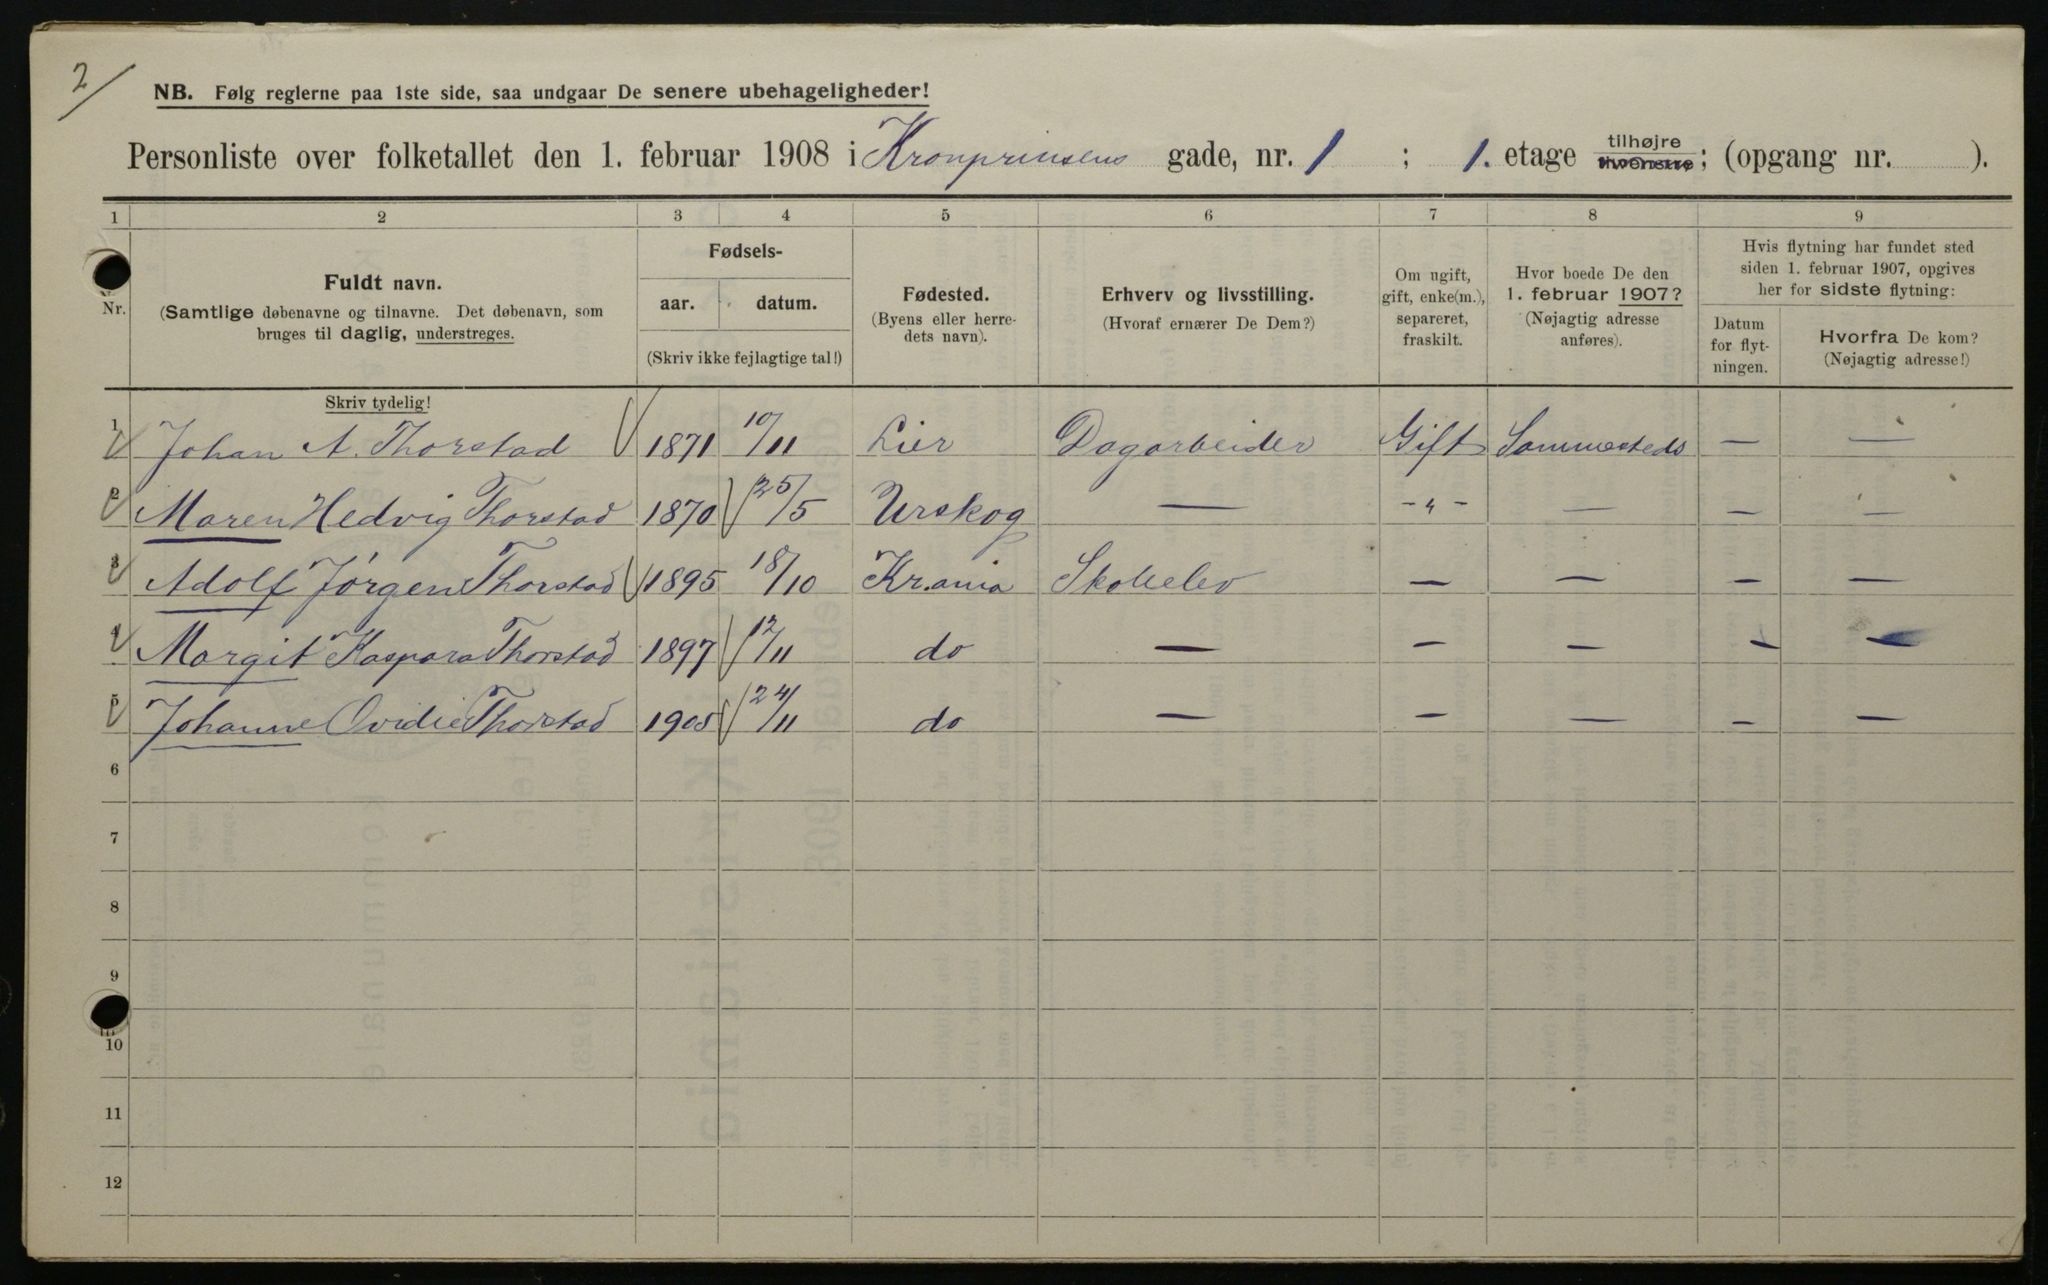 2/
NB. Følg reglerne paa 1ste side, saa undgaar De senere ubehageligheder!
Personliste over folketallet den 1. februar 1908 i Kronprinsens gade, nr. 1 ; 1. etage tilhøjre tilvenstre; (opgang nr. ).
1 2 3 4 5 6 7 8 9
Nr.
Fuldt navn.
(Samtlige døbenavne og tilnavne. Det døbenavn, som
bruges til daglig, understreges.
Skriv tydelig!
Fødsels-
aar. datum.
(Skriv ikke fejlagtige tal!)
Fødested.
(Byens eller herre-
dets navn).
Erhverv og livsstilling.
(Hvoraf ernærer De Dem?)
Om ugift,
gift, enke(m.),
separeret,
fraskilt.
Hvor boede De den
1. februar 1907?
(Nøjagtig adresse
anføres).
Hvis flytning har fundet sted
siden 1. februar 1907, opgives
her for sidste flytning:
Datum
for flyt-
ningen.
Hvorfra De kom?
(Nøjagtig adresse!)
1 Johan A. Thorstad 1871 10/11 Lier Dagarbeider Gift Sammesteds — —
2 Maren Hedvig Thorstad 1870 25/5 Urskog — -"- — — —
3 Adolf Jørgen Thorstad 1895 18/10 Kr.ania Skoleelev — — — —
4 Margit Kaspara Thorstad 1897 12/11 do — — — — —
5 Johanne Ovidie Thorstad 1905 24/11 do — — — — —
6
7
8
9
10
11
12